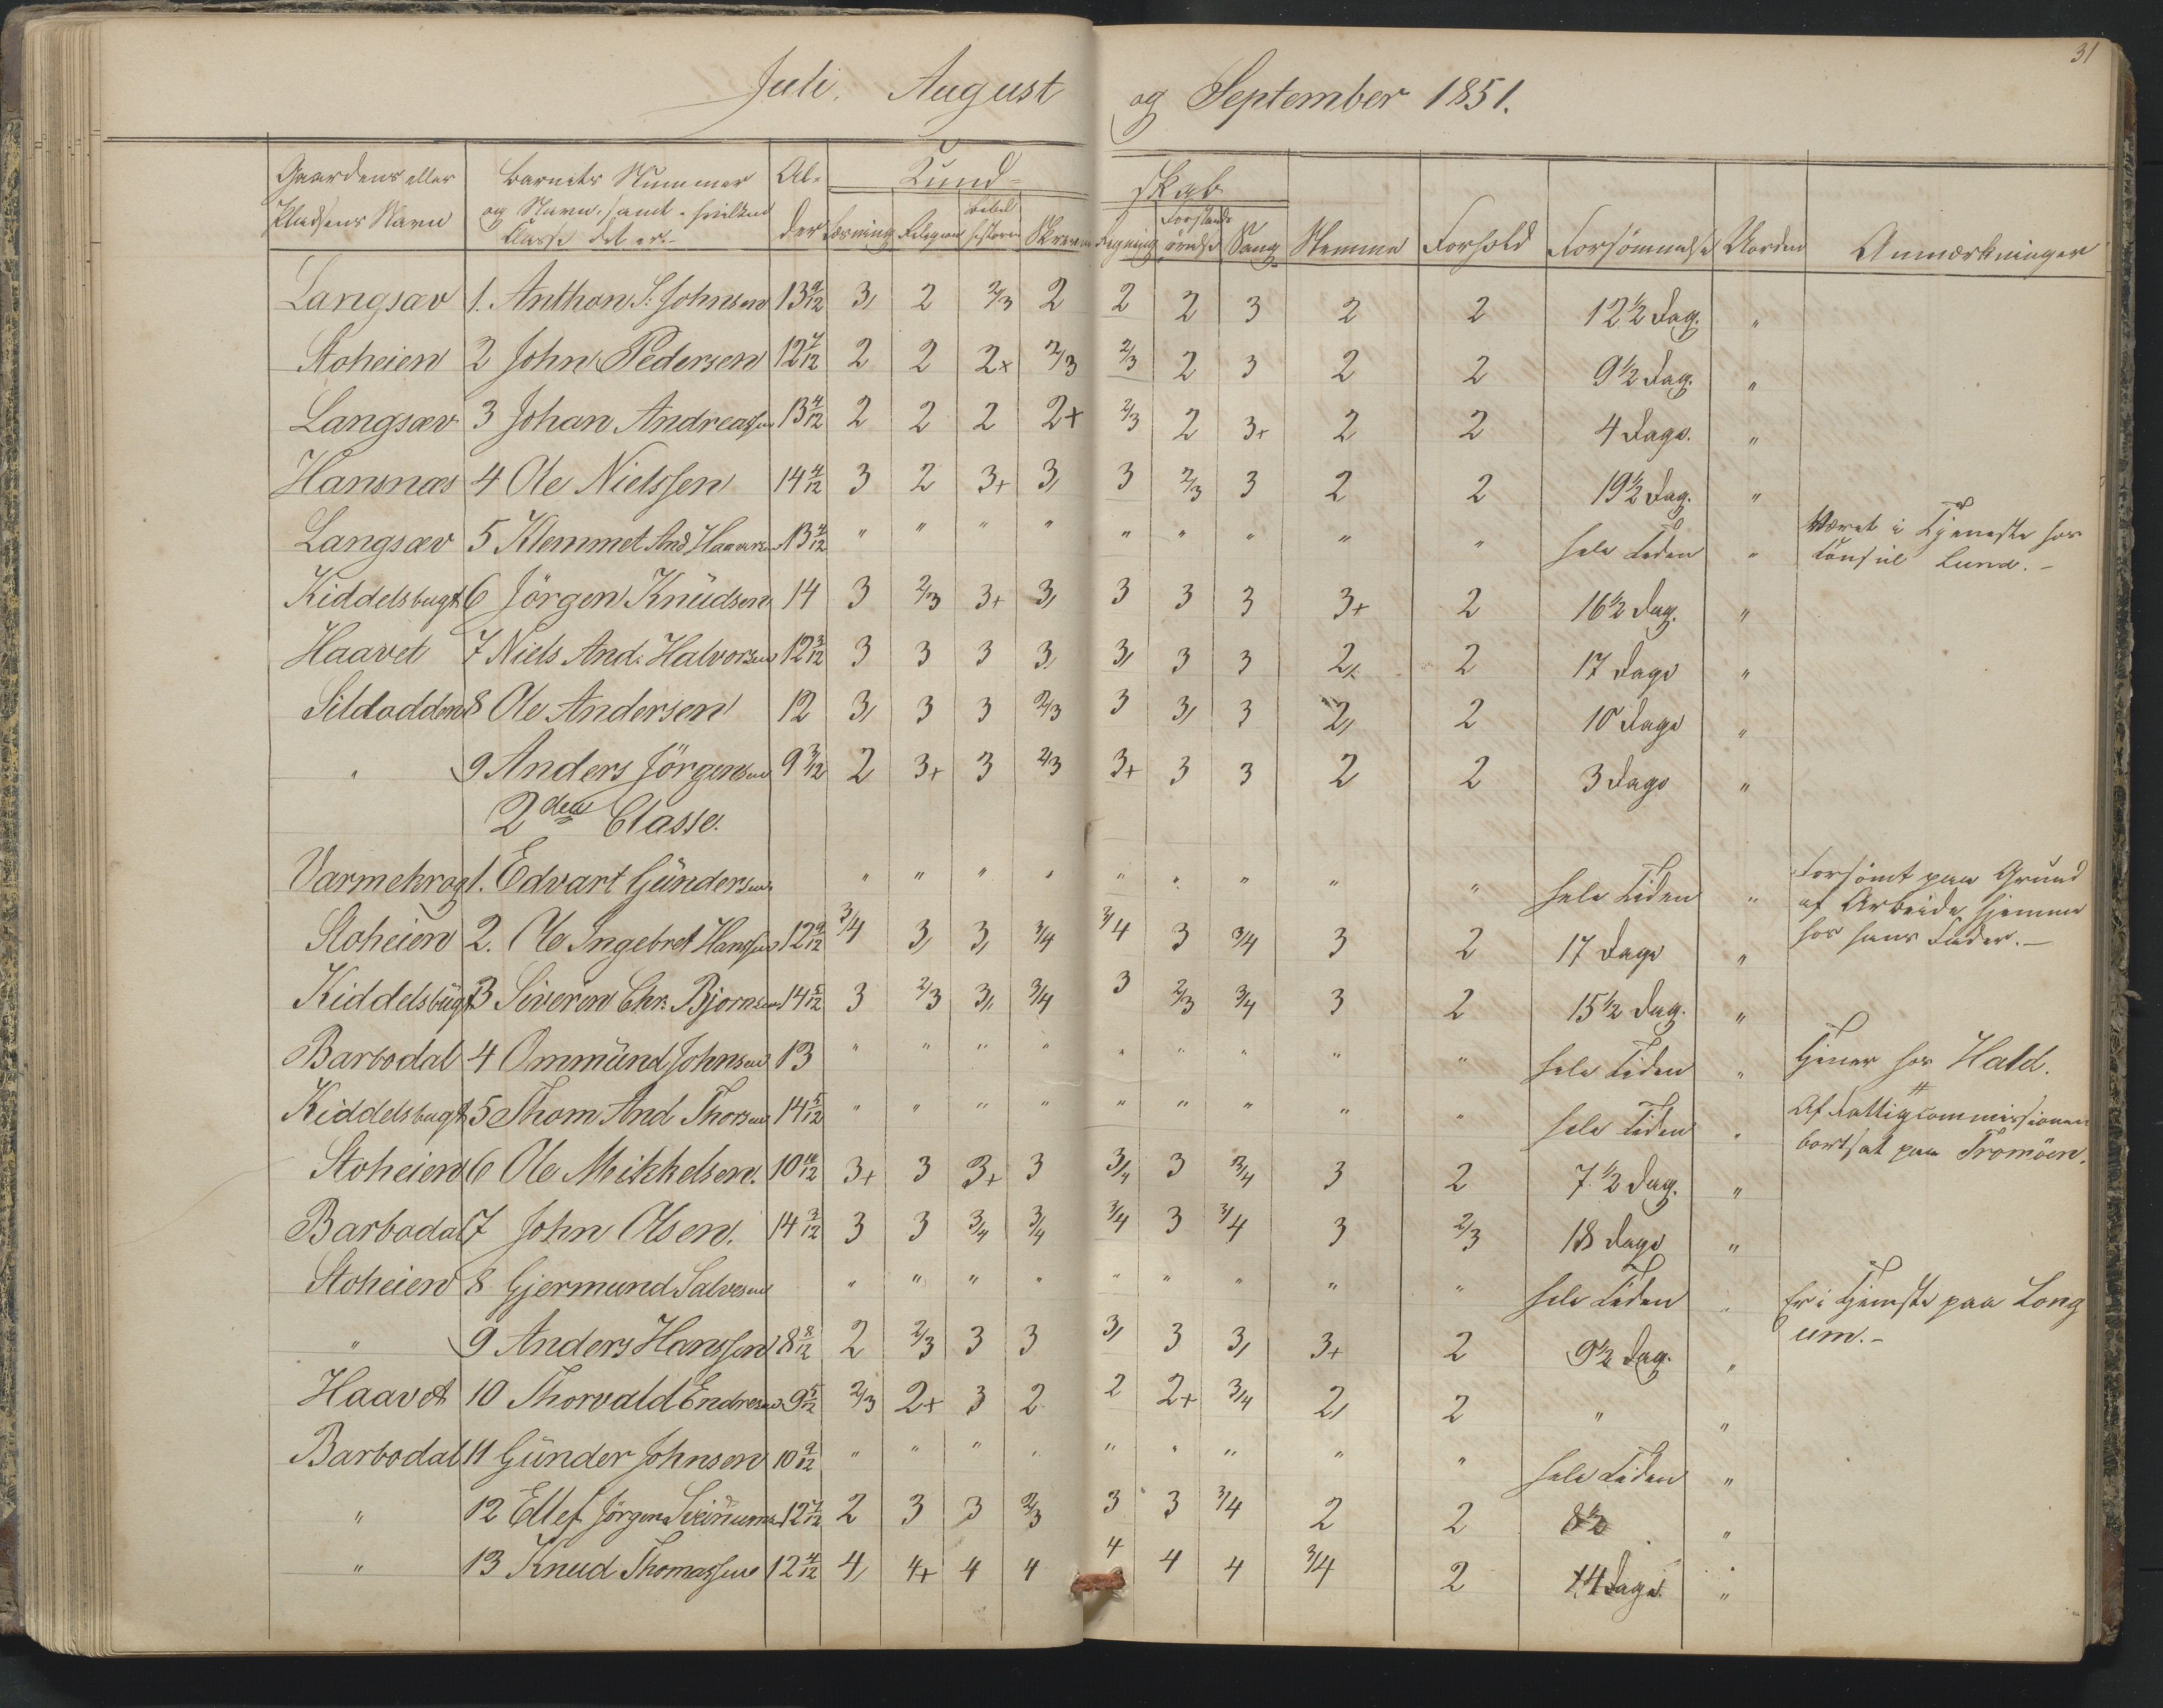 31
Juli. August og September 1851.
Gaardens eller Pladsens Navn | Barnets Nummer og Navn, samt hvilken Classe det er. | Alder | Kundskab: Læsning | Religion | Bibelhistorie | Skriven | Regning | Forstandsövelse | Sang | Stemme | Forhold | Forsömmelse | Norden | Anmærkninger
Langsæv 1. Anthon S: Johnsen 13 9/12 3, 2 2/3 2 2 2 3 2 2 12 1/2 Dag. "
Stoheien 2 John Pedersen 12 7/12 2 2 2+ 2/3 2/3 2 3 2 2 9 1/2 Dag. "
Langsæv 3 Johan Andreassen 13 4/12 2 2 2 2+ 2/3 2 3+ 2 2 4 Dage. "
Hansnæs 4 Ole Nielssen 14 4/12 3 2 3+ 3, 3 2/3 3 2 2 19 1/2 Dag. "
Langsæv 5 Klemmet And Haavorsen 13 4/12 " " " " " " " " " hele Tiden " Været i Tjeneste hos
Consul Lund. -
Kiddelsbugt 6 Jörgen Knudsen 14 3 2/3 3+ 3, 3 3 3 3+ 2 16 1/2 Dag. "
Haavet 7 Niels And: Halvorsen 12 3/12 3 3 3 3, 3, 3 3 2, 2 17 Dage "
Sildodden 8 Ole Andersen 12 3, 3 3 2/3 3 3, 3 2, 2 10 Dage "
" 9 Anders Jörgensen 9 3/12 2 3+ 3 2/3 3+ 3 3 2 2 3 Dage "
2den Classe.
Varmekrog 1. Edvart Gundersen " " " " " " " " " hele Tiden " Forsömt paa Grund
af Arbeide hjemme
hos hans Fader. -
Stoheien 2. Ole Ingebret Hanssen 12 9/12 3/4 3, 3, 3/4 3/4 3 3/4 3 2 17 Dage "
Kiddelsbugt 3 Siveren Chr. Bjornsen 14 5/12 3 2/3 3, 3/4 3 2/3 3/4 3 2 15 1/2 Dag. "
Barbodal 4 Ommund Johnsen 13 " " " " " " " " " hele Tiden " Tjener hos Hald.
Kiddelsbugt 5 Thom And Thorsen 14 5/12 " " " " " " " " " hele Tiden " Af Fattigcommissionen
bortsat paa Tromöen.
Stoheien 6 Ole Mikkelsen. 10 10/12 3+ 3 3+ 3 3/4 3 3/4 3 2 7 1/2 Dag. "
Barbodal 7 John Olsen. 14 3/12 3 3 3/4 3/4 3/4 3 3/4 3 2/3 18 Dage "
Stoheien 8 Gjermund Salvesen " " " " " " " " " hele Tiden " Er i Tjeneste paa Long
um. -
" 9 Anders Hanssen 8 8/12 2 2/3 3 3 3, 3 3, 3+ 2 9 1/2 Dag. "
Haavet 10 Thorvald Endresen 9 5/12 2/3 2+ 3 2 2 2+ 3/4 2, 2 " "
Barbodal 11 Gunder Johnsen 10 9/12 " " " " " " " " " hele Tiden "
" 12 Ellef Jörgen 12 7/12 2 3 3 2/3 3 3 3/4 2 2 8 1/2 "
" 13 Knud Thomassen 12 4/12 4, 4+ 4 4 4 4 4 3/4 2 14 Dage. "